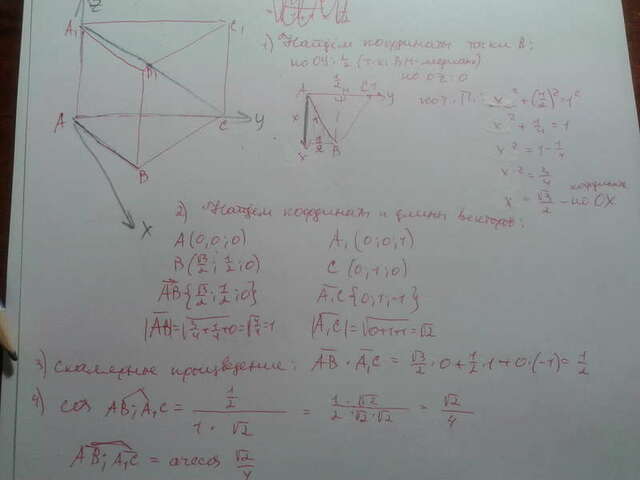 Z
A₁ C₁
B₁
A C У
B
X
1) Найдём координаты точки В:
по ОУ: 1/2 (т.к. ВН-медиана)
по OZ: 0
A 1/2 H C 1 У
X 1
X 1/2 B
по т. П.: x² + (1/2)² = 1²
x² + 1/4 = 1
x² = 1 - 1/4
x² = 3/4
x = √3/2 - координата по ОХ
2) Найдём координаты и длины векторов:
A (0; 0; 0) A₁ (0; 0; 1)
B (√3/2; 1/2; 0) C (0; 1; 0)
AB {√3/2; 1/2; 0} A₁C {0; 1; -1}
|AB| = √(3/4 + 1/4 + 0) = √(4/4) = 1 |A₁C| = √(0+1+1) = √2
3) Скалярное произведение: AB · A₁C = √3/2 · 0 + 1/2 · 1 + 0 · (-1) = 1/2
4) cos AB; A₁C = (1/2)/(1 · √2) = (1 · √2)/(2 · √2 · √2) = √2/4
AB; A₁C = arccos √2/4